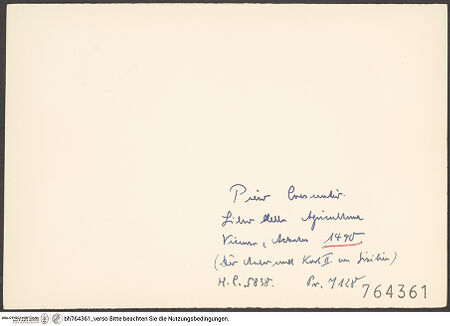 Pier Crescentii.
Liber della Agricultura
Vicenza, Achates 1490
(Der Autor und Karl II. von Sizilien)
H. C. 5838. Pr. 7128
764361
bh764361_verso Bitte beachten Sie die Nutzungsbedingungen.